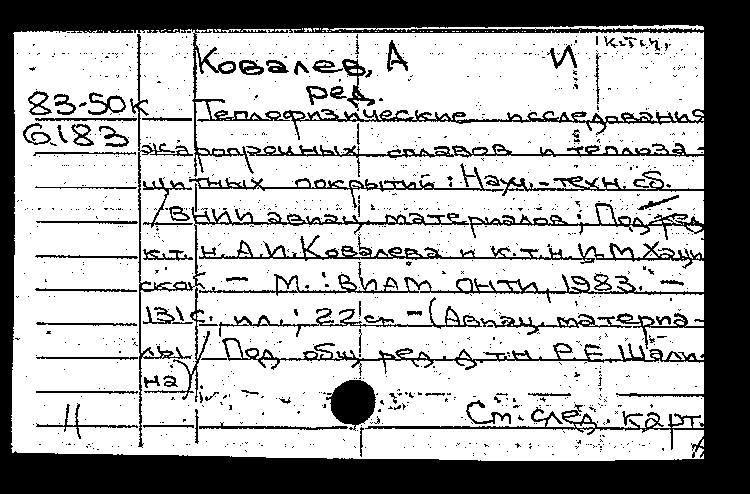 к.т.н.
Ковалев, А И
ред.
83-50К Теплофизические исследования
6183
жаропрочных сплавов и теплоза-
щитных покрытий: Науч.-техн. сб.
/ ВНИИ авиац. материалов; Под ред
к.т.н. А.И. Ковалева и к.т.н. И.М. Хаци
ской. - М.: ВИАМ ОНТИ, 1983. -
131 с., ил.; 22 см - (Авиац. материа-
лы / Под общ ред. д.т.н. Р.Е. Шали-
на)
11 См. след. карт.